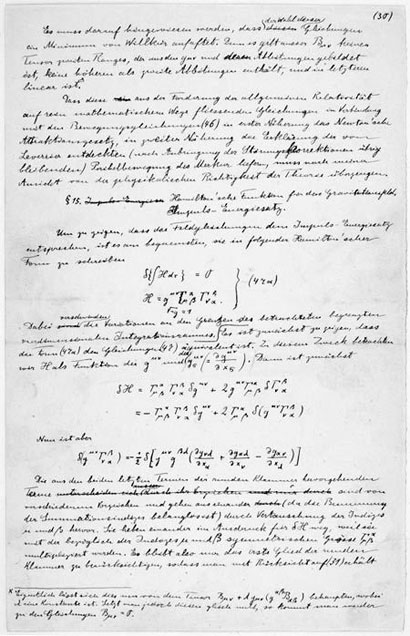 (30)
Es muss darauf hingewiesen werden, dass der Wahl dieser Gleichungen
ein Minimum von Willkür anhaftet. Denn es gibt ausser Bμν keinen
Tensor zweiten Ranges, der aus den gμν und deren Ableitungen gebildet
ist, keine höheren als zweite Ableitungen enthält, und in letzteren
linear ist.*
Dass diese aus der Forderung der allgemeinen Relativität
auf rein mathematischem Wege fliessenden Gleichungen in Verbindung
mit den Bewegungsgleichungen (46) in erster Näherung das Newton'sche
Attraktionsgesetz, in zweiter Näherung die Erklärung der von
Leverrier entdeckten (nach Anbringung der Störungskorrektionen übrig
bleibenden) Perihelbewegung des Merkur liefern, muss nach meiner
Ansicht von der physikalischen Richtigkeit der Theorie überzeugen.
§ 15. Hamilton'sche Funktion für das Gravitationsfeld,
Impuls-Energiesatz.
Um zu zeigen, dass die Feldgleichungen dem Impuls-Energiesatz
entsprechen, ist es am bequemsten, sie in folgender Hamilton'scher
Form zu schreiben
δ{∫H dτ} = 0
H = g^μν Γ^α_μβ Γ^β_να } (47a)
√-g = 1
Dabei verschwinden die Variationen an den Grenzen des betrachteten begrenzten
vierdimensionalen Integrationsraumes. Es ist zunächst zu zeigen, dass
die Form (47a) den Gleichungen (47) äquivalent ist. Zu diesem Zweck betrachten
wir H als Funktion der g^μν und der g^μν_σ (= ∂g^μν/∂x_σ). Dann ist zunächst
δH = Γ^α_μβ Γ^β_να δg^μν + 2 g^μν Γ^α_μβ δΓ^β_να
= − Γ^α_μβ Γ^β_να δg^μν + 2 Γ^α_μβ δ(g^μν Γ^β_να)
Nun ist aber
δ(g^μν Γ^β_να) = −½ δ[g^μν g^βλ (∂g_νλ/∂x_α + ∂g_αλ/∂x_ν − ∂g_αν/∂x_λ)]
Die aus den beiden letzten Termen der runden Klammer hervorgehenden
Terme sind von
verschiedenem Vorzeichen und gehen auseinander (da die Benennung
der Summationsindizes belanglos ist) durch Vertauschung der Indizes
μ und β hervor. Sie heben einander im Ausdruck für δH weg, weil sie
mit der bezüglich der Indizes μ und β symmetrischen Grösse Γ^α_μβ
multipliziert werden. Es bleibt also nur das erste Glied der runden
Klammer zu berücksichtigen, sodass man mit Rücksicht auf (31) erhält
* Eigentlich lässt sich dies nur von dem Tensor Bμν + λ gμν (g^αβ Bαβ) behaupten, wobei
λ eine Konstante ist. Setzt man jedoch diesen gleich null, so kommt man wieder
zu den Gleichungen Bμν = 0.